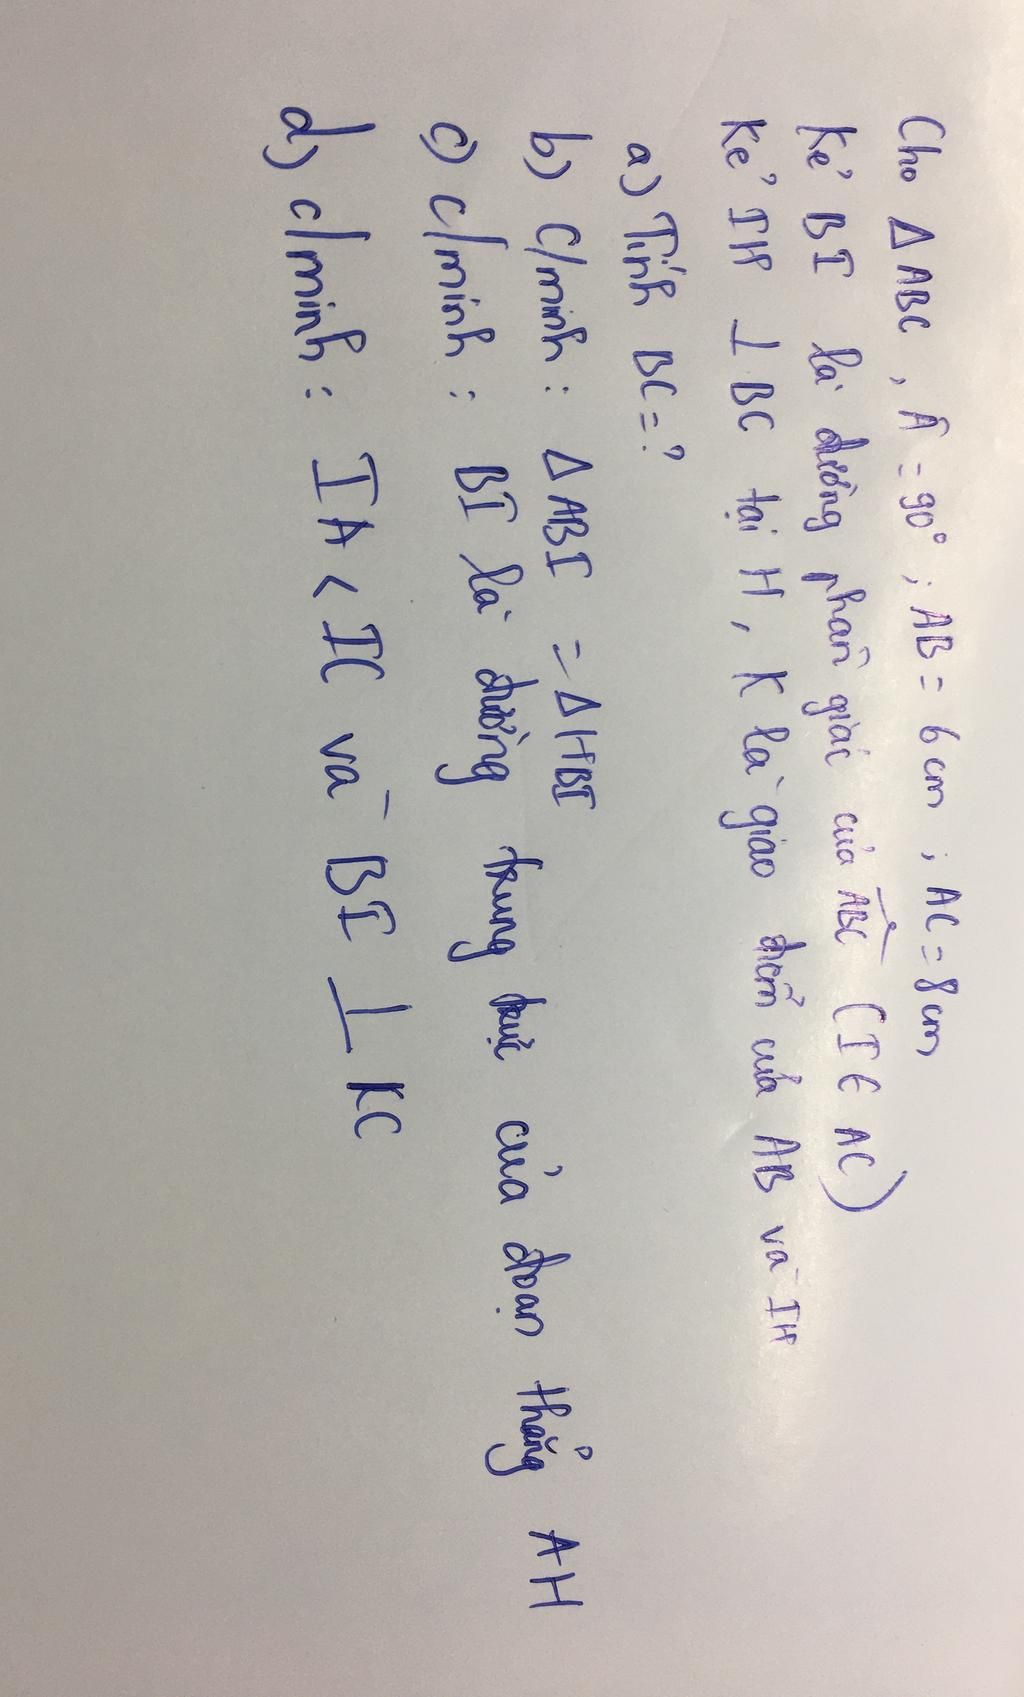 Cho Δ ABC , Â = 90° ; AB = 6 cm ; AC = 8 cm
Kẻ BI là đường phân giác của ABC (I ∈ AC)
Kẻ IH ⊥ BC tại H, K là giao điểm của AB và IH
a) Tính BC = ?
b) C/minh : Δ ABI = Δ HBI
c) C/minh : BI là đường trung trực của đoạn thẳng AH
d) c/minh : IA < IC và BI ⊥ KC